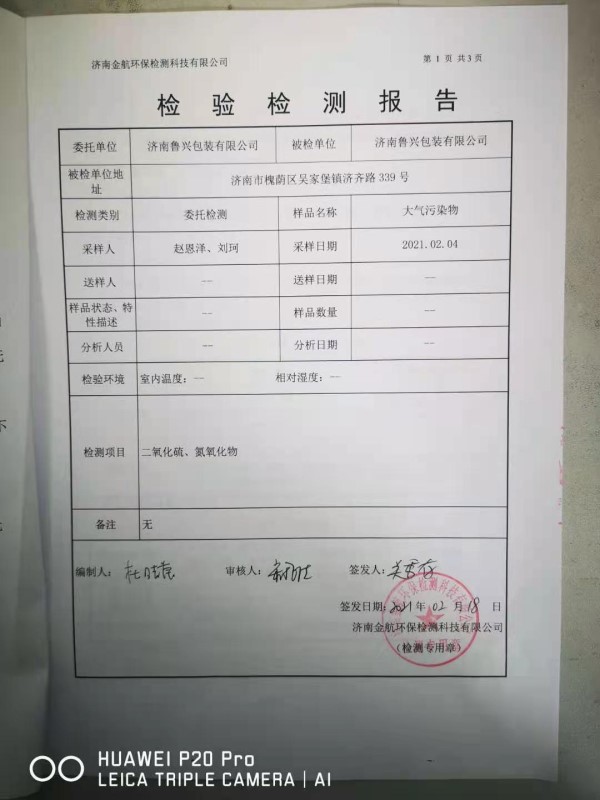 济南金航环保检测科技有限公司 第 1 页 共3 页
检验检测报告
委托单位 济南鲁兴包装有限公司 被检单位 济南鲁兴包装有限公司
被检单位地址 济南市槐荫区吴家堡镇济齐路 339 号
检测类别 委托检测 样品名称 大气污染物
采样人 赵恩泽、刘珂 采样日期 2021.02.04
送样人 -- 送样日期 --
样品状态、特性描述 -- 样品数量 --
分析人员 -- 分析日期 --
检验环境 室内温度：-- 相对湿度：--
检测项目 二氧化硫、氮氧化物
备注 无
编制人： 审核人： 签发人：
签发日期：2021 年 02 月 18 日
济南金航环保检测科技有限公司
（检测专用章）
HUAWEI P20 Pro
LEICA TRIPLE CAMERA | AI